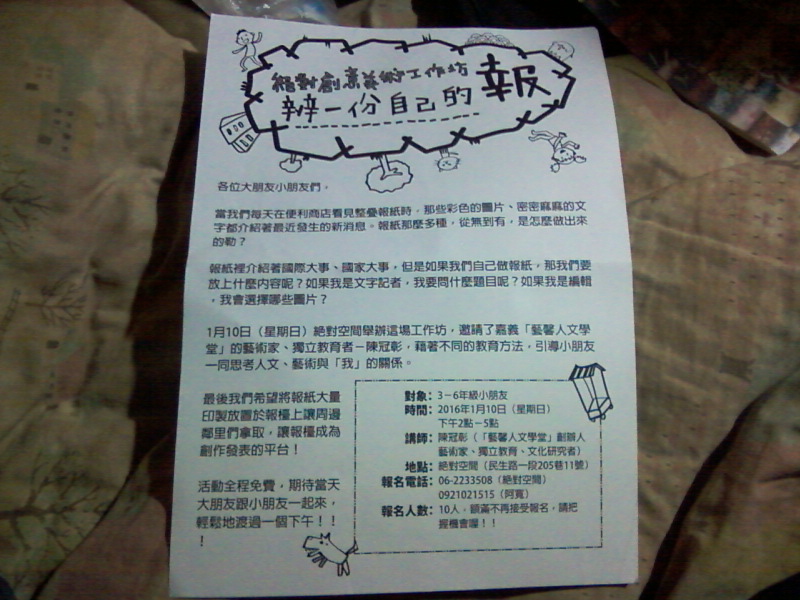 絕對創意美術工作坊
辦一份自己的報
各位大朋友小朋友們，
當我們每天在便利商店看見整疊報紙時，那些彩色的圖片、密密麻麻的文
字都介紹著最近發生的新消息。報紙那麼多種，從無到有，是怎麼做出來
的勒？
報紙裡介紹著國際大事、國家大事，但是如果我們自己做報紙，那我們要
放上什麼內容呢？如果我是文字記者，我要問什麼題目呢？如果我是編輯
，我會選擇哪些圖片？
1月10日（星期日）絕對空間舉辦這場工作坊，邀請了嘉義「藝馨人文學
堂」的藝術家、獨立教育者－陳冠彰，藉著不同的教育方法，引導小朋友
一同思考人文、藝術與「我」的關係。
最後我們希望將報紙大量
印製放置於報檯上讓周邊
鄰里們拿取，讓報檯成為
創作發表的平台！
活動全程免費，期待當天
大朋友跟小朋友一起來，
輕鬆地渡過一個下午！！
！
對象：3－6年級小朋友
時間：2016年1月10日（星期日）
下午2點－5點
講師：陳冠彰（「藝馨人文學堂」創辦人
藝術家、獨立教育、文化研究者）
地點：絕對空間（民生路一段205巷11號）
報名電話：06-2233508（絕對空間）
0921021515（阿寬）
報名人數：10人，額滿不再接受報名，請把
握機會喔！！